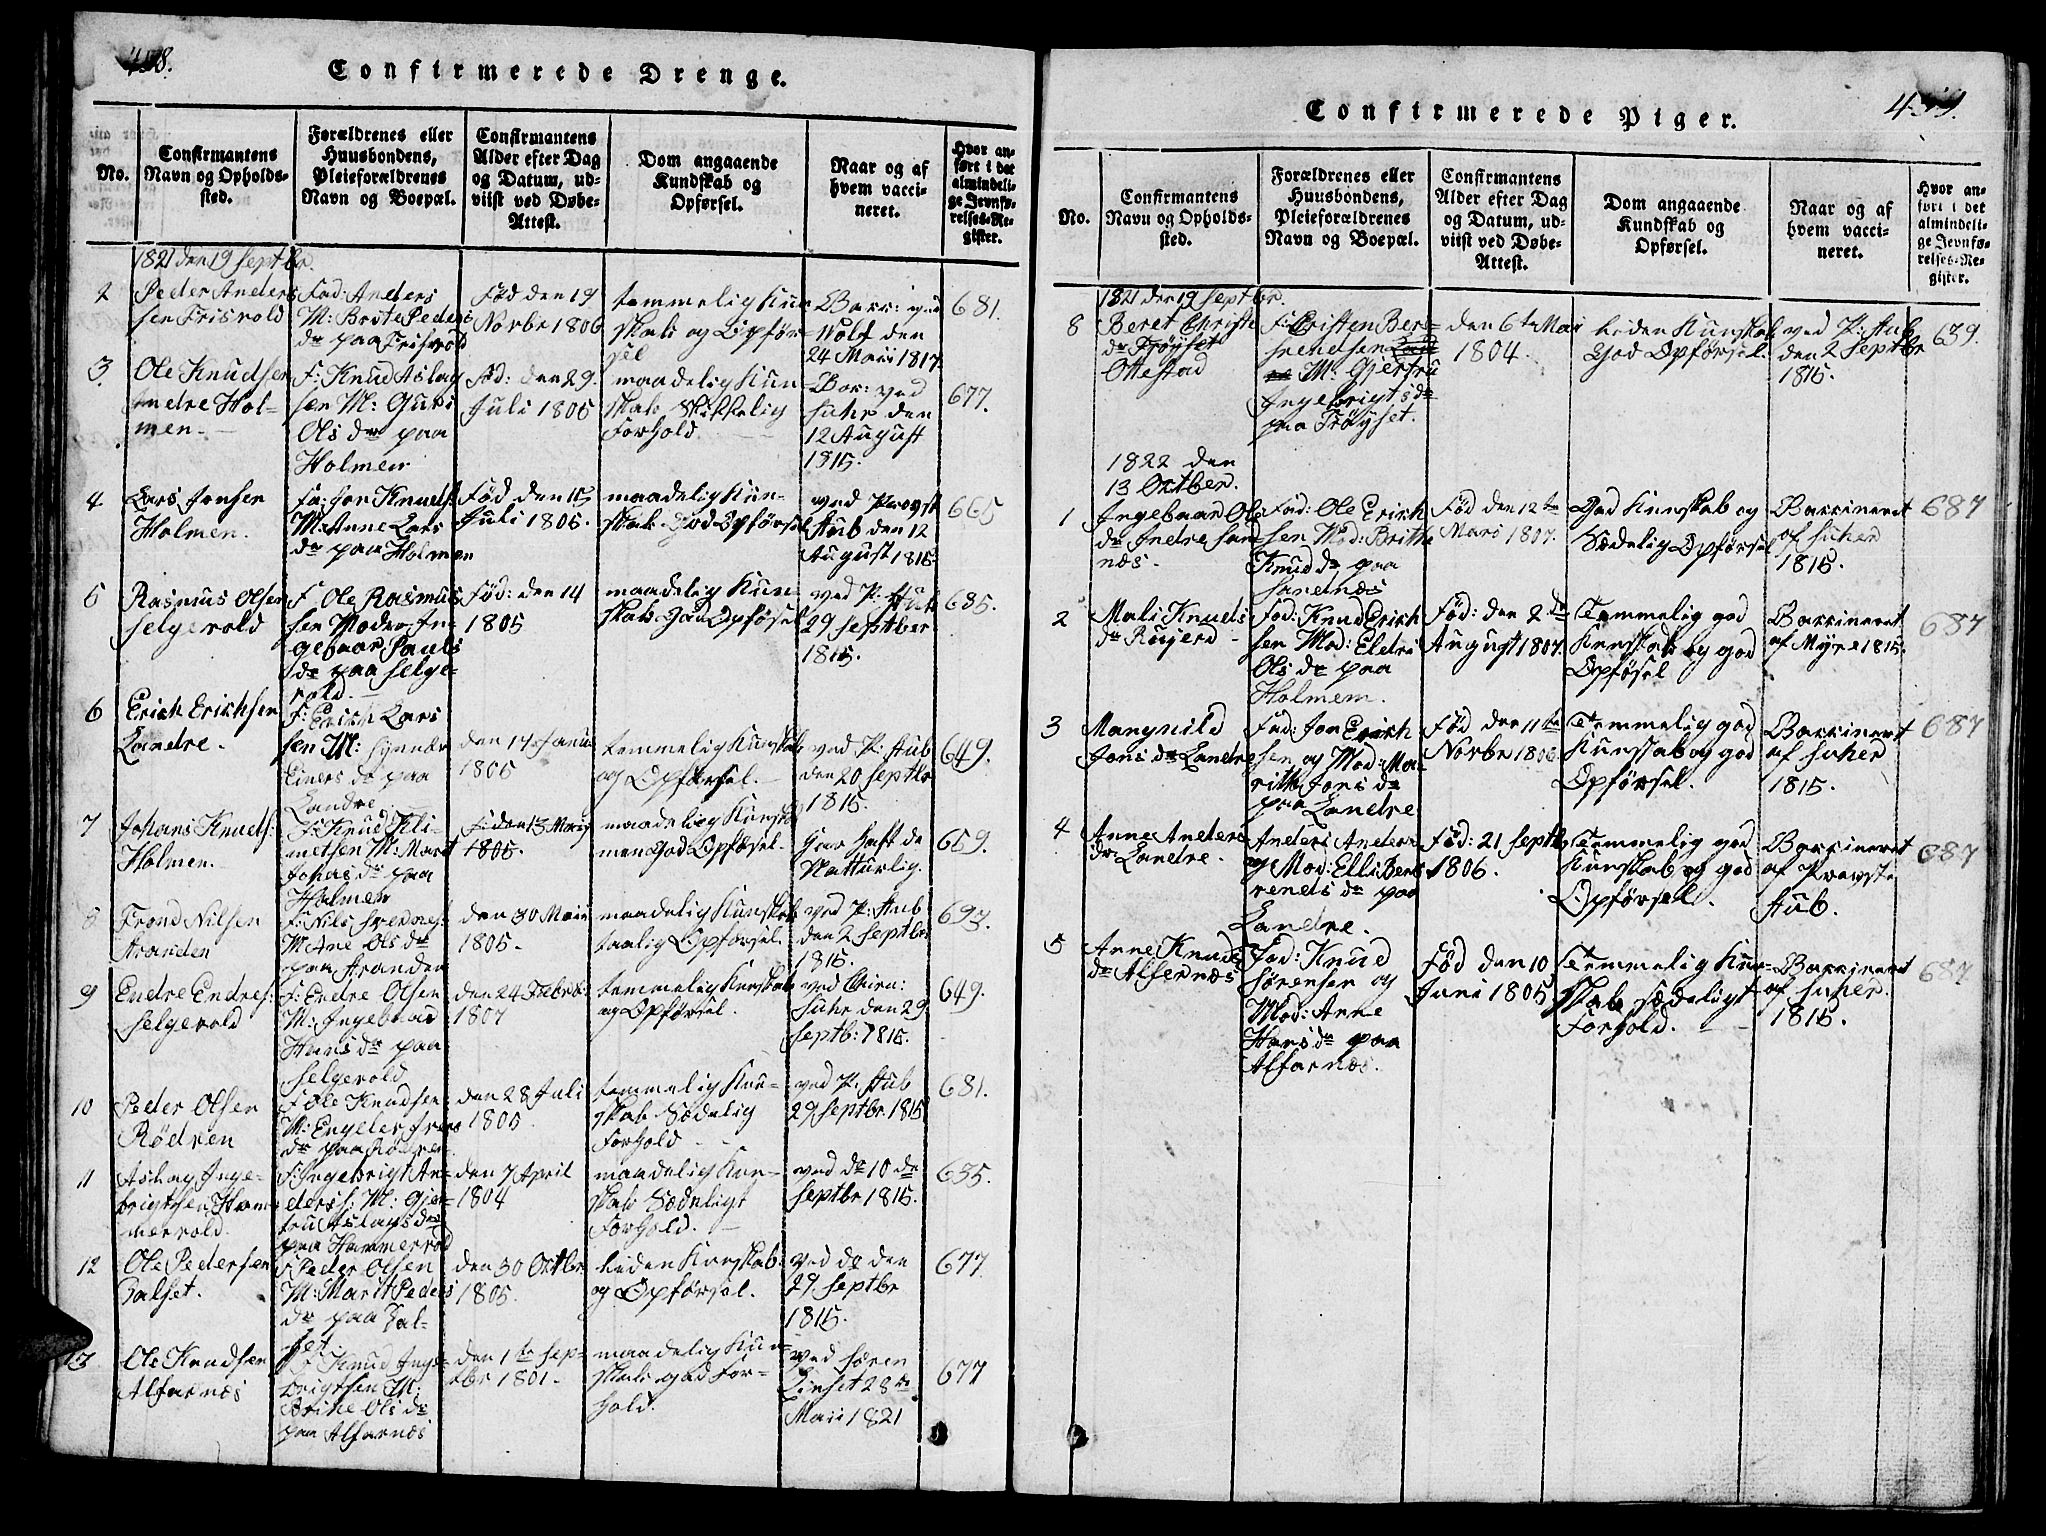 Confirmerede Drenge.
No.
Confirmantens
Navn og Opholds-
sted.
Forældrenes eller
Huusbondens,
Pleieforældrenes
Navn og Boepæl.
Confirmantens
Alder efter Dag
og Datum, ud-
viist ved Døbe-
Attest.
Dom angaaende
Kundskab og
Opførsel.
Naar og af
hvem vacci-
neret.
Hvor an-
ført i det
almindeli-
ge Jevnfø-
relses-Re-
gister.
1821 den 19 Septbr.
2
Peder Anders
sen Frisvold
Fad: Anders
M: Brite Peders
dr paa Frisvold
Fød den 19
Novbr 1806
temmelig Kun
skab og Opfør
sel
Vacc: ved
Wold den
24 Maii 1817.
681.
3.
Ole Knudsen
indre Hol-
men.
F: Knud Aslag
sen M: Guri
Ols dr paa
Holmen
Fød: den 29.
Juli 1805
maadelig Kun
skab Skikkelig
Forhold.
Vac: ved
Suhr den
12 August
1815.
677.
4
Lars Jonsen
Holmen.
Fa: Jon Knuds:
M: Anne Lars
dr paa Holmen
Fød den 15
Juli 1806.
maadelig Kun-
skab God Opførsel
ved Provst
Stub den 12
August 1815.
665
5
Rasmus Olsen
Selgevold
F Ole Rasmus
sen Moder In-
gebaar Pauls
dr paa Selge-
vold.
Fød: den 14
1805
maadelig Kun
skab God Opførsel
ved P: Stub
29 Septbr
1815.
685.
6
Erich Erichsen
Landre.
F: Erich Lars
sen M: Synnev
Einers dr paa
Landre
den 17 Janu
1805
temmelig Kunskab
og Opførsel.
ved P: Stub
den 20 Septbr
1815.
649.
7
Johans Knuds:
Holmen.
F: Knud Kli-
metsen M: Marit
Jonas dr paa
Holmen
F: den 13 Marts
1805.
maadelig Kunska
men God Opførsel.
har haft de
Natturlig.
659.
8
Trond Nilsen
Stranden
F: Nils Svends:
M Ane Ols dr
paa Stranden
den 30 Maii
1805.
maadelig Kunskab
taalig Opførsel.
ved P: Stub
den 2 Septbr
1815.
693.
9
Endre Endres:
Selgevold
F: Endre Olsen
M: Ingebaar
Hans dr paa
Selgevold
den 24 Febrb:
1807
temmelig Kunskab
og Opførsel.
ved Chiru:
Suhr den 29
Septb: 1815.
649.
10
Peder Olsen
Rødven
F Ole Knudsen
M: Engeler Ivers
dr paa Rødven
den 28 Juli
1805.
temmelig Kun-
skab Sædelig
Forhold
ved P: Stub
29 Septbr 1815
681.
11
Aslag Inge-
brigtsen Ham
mervold.
F: Ingebrigt An-
derss: M: Gjer
tru Aslags dr
paa Hammervold
den 7 April
1804
maadelig Kun-
skab Sædeligt
Forhold.
ved do 10 de
Septbr 1815.
635.
12
Ole Pedersen
Dalset.
F Peder Olsen
M: Marit Peders
dr paa Dal-
set
den 30 Octbr
1805.
liden Kunskab:
og Opførsel.
ved do den
29 Septbr
1815.
677
13
Ole Knudsen
Alfarnæs
F Knud Inge-
brigtsen M:
Brithe Ols dr
paa Alfarnæs
den 1te Sep-
tbr 1801.
maadelig Kun-
skab god For-
hold.
ved Søren
Linset 28 de
Maii 1821
677
Confirmerede Piger.
No.
Confirmantens
Navn og Opholds-
sted.
Forældrenes eller
Huusbondens,
Pleieforældrenes
Navn og Boepæl.
Confirmantens
Alder efter Dag
og Datum, ud-
viist ved Døbe-
Attest.
Dom angaaende
Kundskab og
Opførsel.
Naar og af
hvem vacci-
neret.
Hvor an-
ført i det
almindeli-
ge Jevnfø-
relses-Re-
gister.
1821 den 19 Septbr.
8
Beret Christe
dr Trøyset
Ottestad
F: Cristen Ber-
srendsen
M: Gjertru
Ingebrigts dr
paa Trøyset.
den 6te Mai
1804.
liden Kunskab
God Opførsel.
ved P: Stub
den 2 Septbr
1815.
639.
1822 den
13 Octber.
1
Ingebaar Ols
dr Indre Sand-
næs.
Fad: Ole Erich
sen Mod: Brithe
Knud dr paa
Sandnæs
Fød den 12te
Mars 1807.
God Kunskab og
Sædelig Opførsel
Vaccineret
af Suher
1815.
687
2
Mali Knuds
dr
Fad: Knud Erich
sen Mod: Eldri
Ols dr paa
Holmem.
Fød: den 2 de
August 1807.
Temmelig god
Kunskab og god
Opførsel
Vaccineret
af Myre 1815.
687
3
Mangnild
Jons dr Landre
Fad: Jon Erich
sen og Mod: Ma-
rith Jons dr
paa Landre
Fød den 11te
Novbr 1806
Temmelig god
Kunskab og god
Opførsel.
Vaccineret
af Suher
1815.
687
4
Anne Anders
dr Landre.
Anders Anders
og Mod: Elli Bers
rends dr paa
Landre.
Fød: 21 Septb
1806.
Temmelig god
Kunskab og god
Opførsel.
Vaccineret
af Provste
Stub.
687
5
Anne Knuds
dr Alfernæs
Fad: Knud
Sørensen og
Mod: Anne
Hans dr paa
Alfarnæs.
Fød den 10
Juni 1805
Temmelig Kun-
skab Sædeligt
Forhold.
Vaccineret
af Suher.
1815.
687